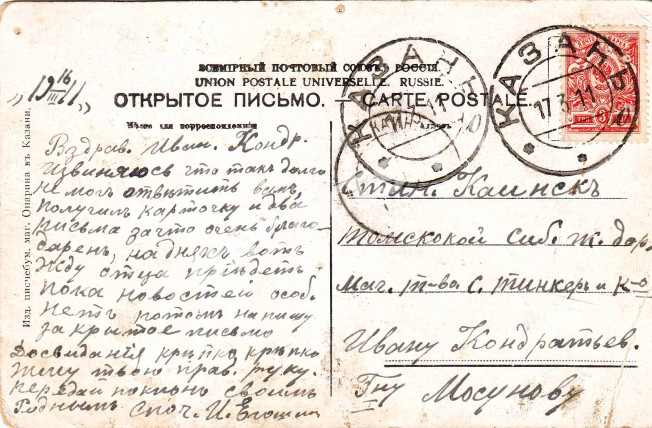 ВСЕМІРНЫЙ ПОЧТОВЫЙ СОЮЗЪ. РОССІЯ.
UNION POSTALE UNIVERSELLE. RUSSIE.
ОТКРЫТОЕ ПИСЬМО. — CARTE POSTALE.
Мѣсто для корреспонденціи
КАЗАНЬ
17.3.11
КАЗАНЬ
17.3.11
„19 16/III 11„
Вздрав. Иван. Кондр.
Извиняюсь что такъ долго
не могъ отвѣтить вамъ,
получилъ карточку и два
письма за что очень благо-
даренъ, на дняхъ вотъ
жду отца пріѣдетъ
пока новостей особ.
нетъ потомъ напишу
закрытое письмо
Досвиданія крѣпко крѣпко
жму твою прав. руку.
передай поклонъ своимъ
Роднымъ
Стан. Каинскъ
Томскокой Сиб. ж. дор.
Маг. т-ва С. Тинкеръ и К-о
Ивану Кондратьев.
Гну Мосунову
Изд. писчебум. маг. Опарина въ Казани.